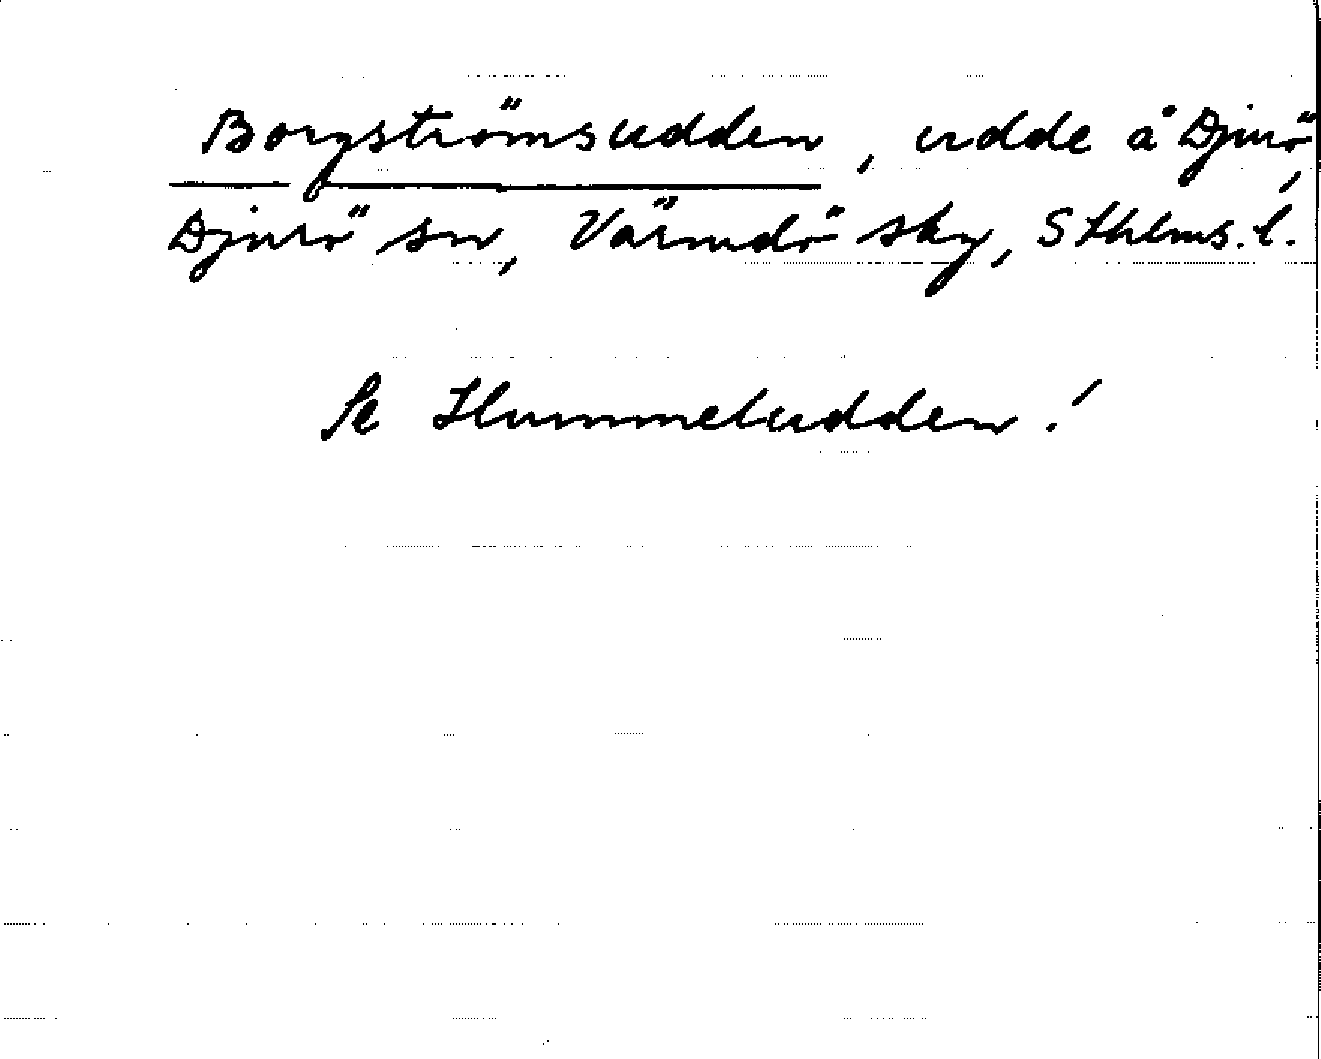 Borgströmsudden, udde å Djurö,
Djurö sn, Värmdö sky, Sthlms. l.
Se Hummeludden!